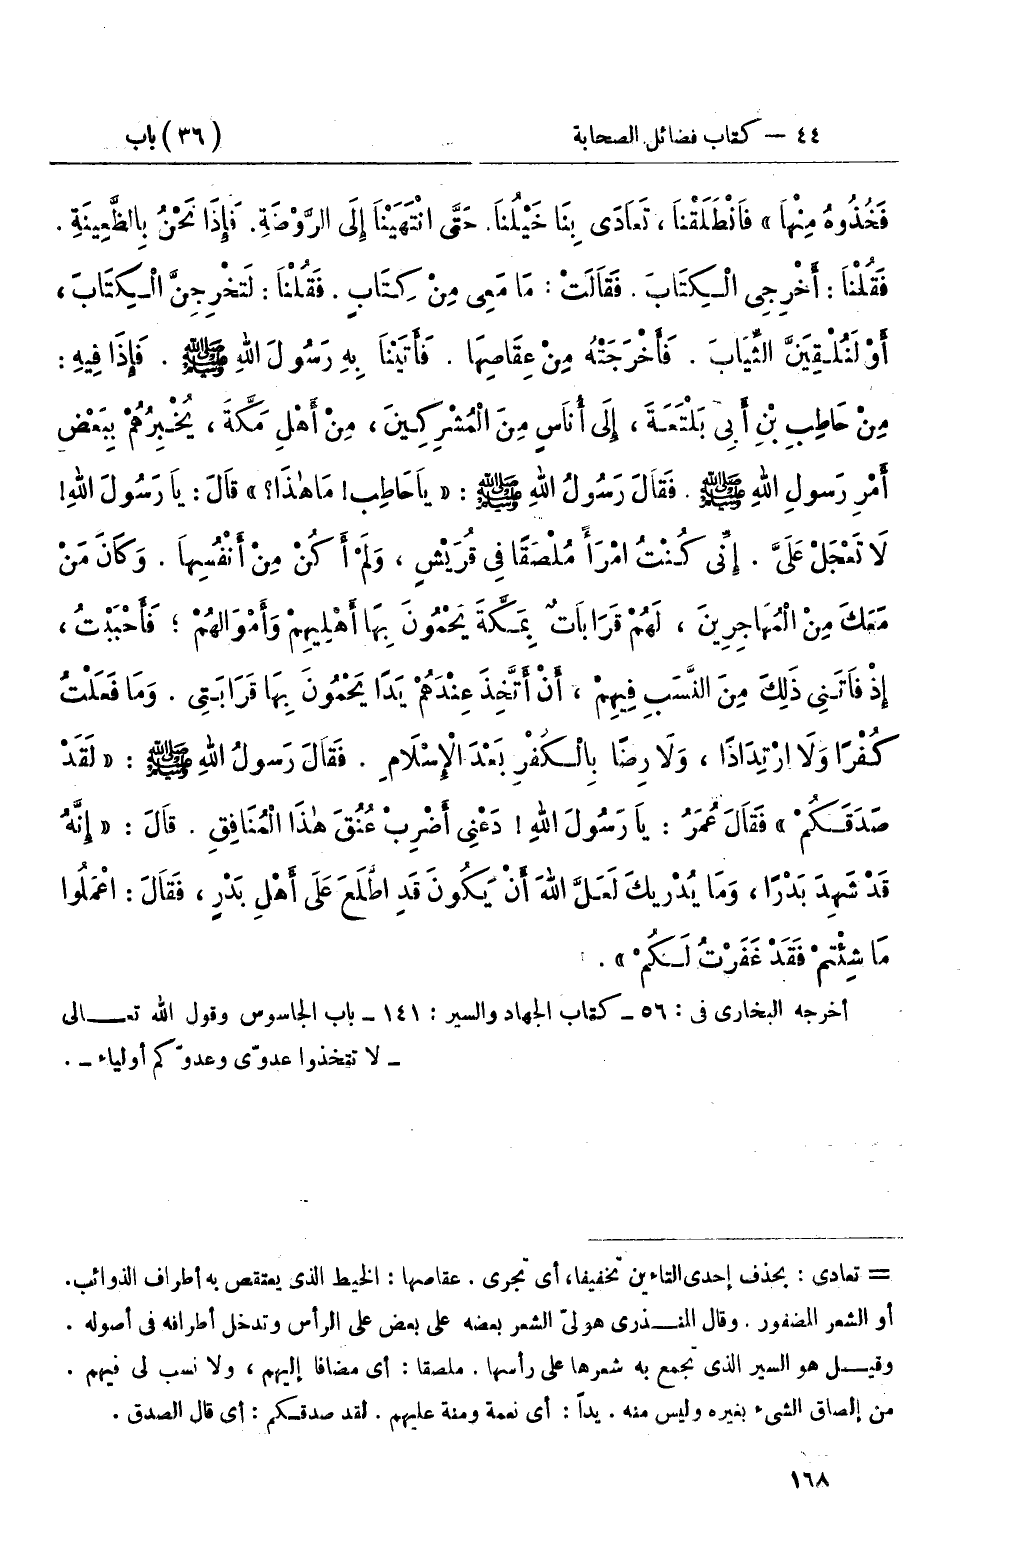 ٤٤ — كتاب فضائل الصحابة (٣٦) باب
فَخُذُوهُ مِنْهَا » فَانْطَلَقْنَا ، تَعَادَى بِنَا خَيْلُنَا. حَتَّى انْتَهَيْنَا إِلَى الرَّوْضَةِ. فَإِذَا نَحْنُ بِالظَّعِينَةِ .
فَقُلْنَا : أَخْرِجِى الْكِتَابَ . فَقَالَتْ : مَا مَعِى مِنْ كِتَابٍ . فَقُلْنَا : لَتُخْرِجِنَّ الْكِتَابَ ،
أَوْ لَنُلْقِيَنَّ الثِّيَابَ . فَأَخْرَجَتْهُ مِنْ عِقَاصِهَا . فَأَتَيْنَا بِهِ رَسُولَ اللهِ ﷺ . فَإِذَا فِيهِ :
مِنْ حَاطِبِ بْنِ أَبِى بَلْتَعَةَ ، إِلَى أُنَاسٍ مِنَ الْمُشْرِكِينَ ، مِنْ أَهْلِ مَكَّةَ ، يُخْبِرُهُمْ بِبَعْضِ
أَمْرِ رَسُولِ اللهِ ﷺ . فَقَالَ رَسُولُ اللهِ ﷺ : « يَا حَاطِب! مَا هٰذَا؟ » قَالَ : يَا رَسُولَ اللهِ!
لَا تَعْجَلْ عَلَىَّ . إِنِّى كُنْتُ امْرَأً مُلْصَقًا فِى قُرَيْشٍ ، وَلَمْ أَكُنْ مِنْ أَنْفُسِهَا . وَكَانَ مَنْ
مَعَكَ مِنْ الْمُهَاجِرِينَ ، لَهُمْ قَرَابَاتٌ بِمَكَّةَ يَحْمُونَ بِهَا أَهْلِيهِمْ وَأَمْوَالَهُمْ ؛ فَأَحْبَبْتُ ،
إِذْ فَاتَنِى ذَلِكَ مِنَ النَّسَبِ فِيهِمْ ، أَنْ أَتَّخِذَ عِنْدَهُمْ يَدًا يَحْمُونَ بِهَا قَرَابَتِى . وَمَا فَعَلْتُ
كُفْرًا وَلَا ارْتِدَادًا ، وَلَا رِضًا بِالْكُفْرِ بَعْدَ الْإِسْلَامِ . فَقَالَ رَسُولُ اللهِ ﷺ : « لَقَدْ
صَدَقَكُمْ » فَقَالَ عُمَرُ : يَا رَسُولَ اللهِ ! دَعْنِى أَضْرِبْ عُنُقَ هٰذَا الْمُنَافِقِ . قَالَ : « إِنَّهُ
قَدْ شَهِدَ بَدْرًا ، وَمَا يُدْرِيكَ لَعَلَّ اللهَ أَنْ يَكُونَ قَدِ اطَّلَعَ عَلَى أَهْلِ بَدْرٍ ، فَقَالَ : اعْمَلُوا
مَا شِئْتُمْ فَقَدْ غَفَرْتُ لَكُمْ » .
أخرجه البخارى فى : ٥٦ ـ كتاب الجهاد والسير : ١٤١ ـ باب الجاسوس وقول الله تعالى
ـ لا تتخذوا عدوّى وعدوّكم أولياء ـ .
= تعادى : بحذف إحدى التاءين تخفيفا، أى تجرى . عقاصها : الخيط الذى يعتقص به أطراف الذوائب.
أو الشعر المضفور . وقال المنذرى هو لىّ الشعر بعضه على بعض على الرأس وتدخل أطرافه فى أصوله .
وقيل هو السير الذى تجمع به شعرها على رأسها . ملصقا : أى مضافا إليهم ، ولا نسب لى فيهم .
من إلصاق الشىء بغيره وليس منه . يداً : أى نعمة ومنة عليهم . لقد صدقكم : أى قال الصدق .
١٦٨